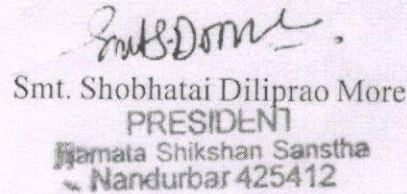 Smt. Shobhatai Diliprao More
PRESIDENT
Jijamata Shikshan Sanstha
Nandurbar 425412